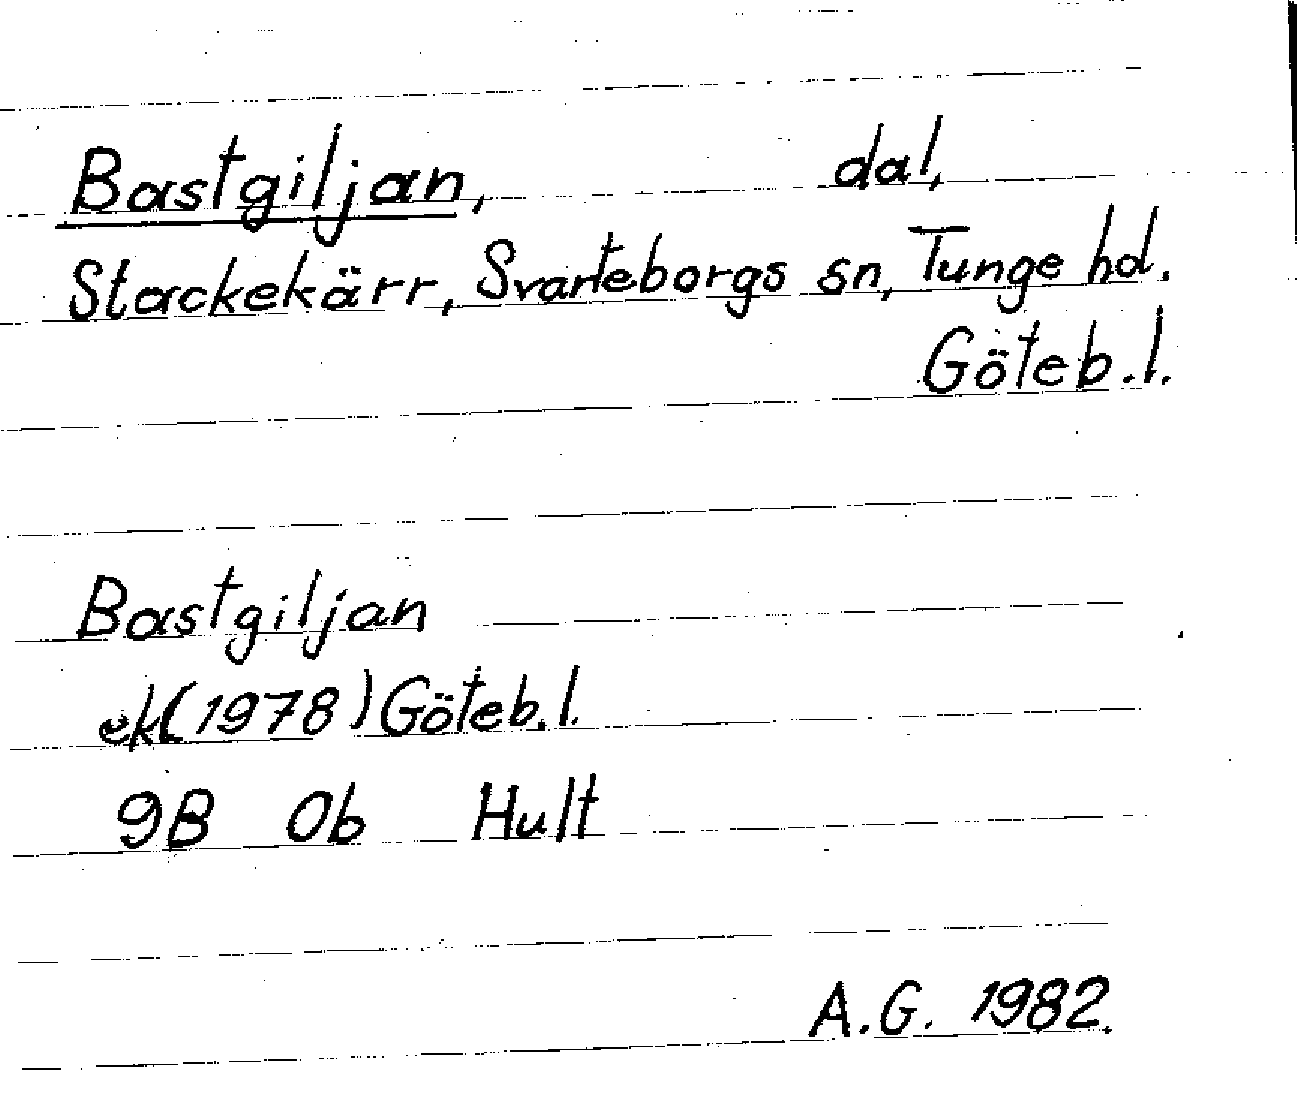 Bastgiljan, dal,
Stackekärr, Svarteborgs sn, Tunge hd.
Göteb.l.
Bastgiljan
ek(1978) Göteb.l.
9B 0b Hult
A.G. 1982.